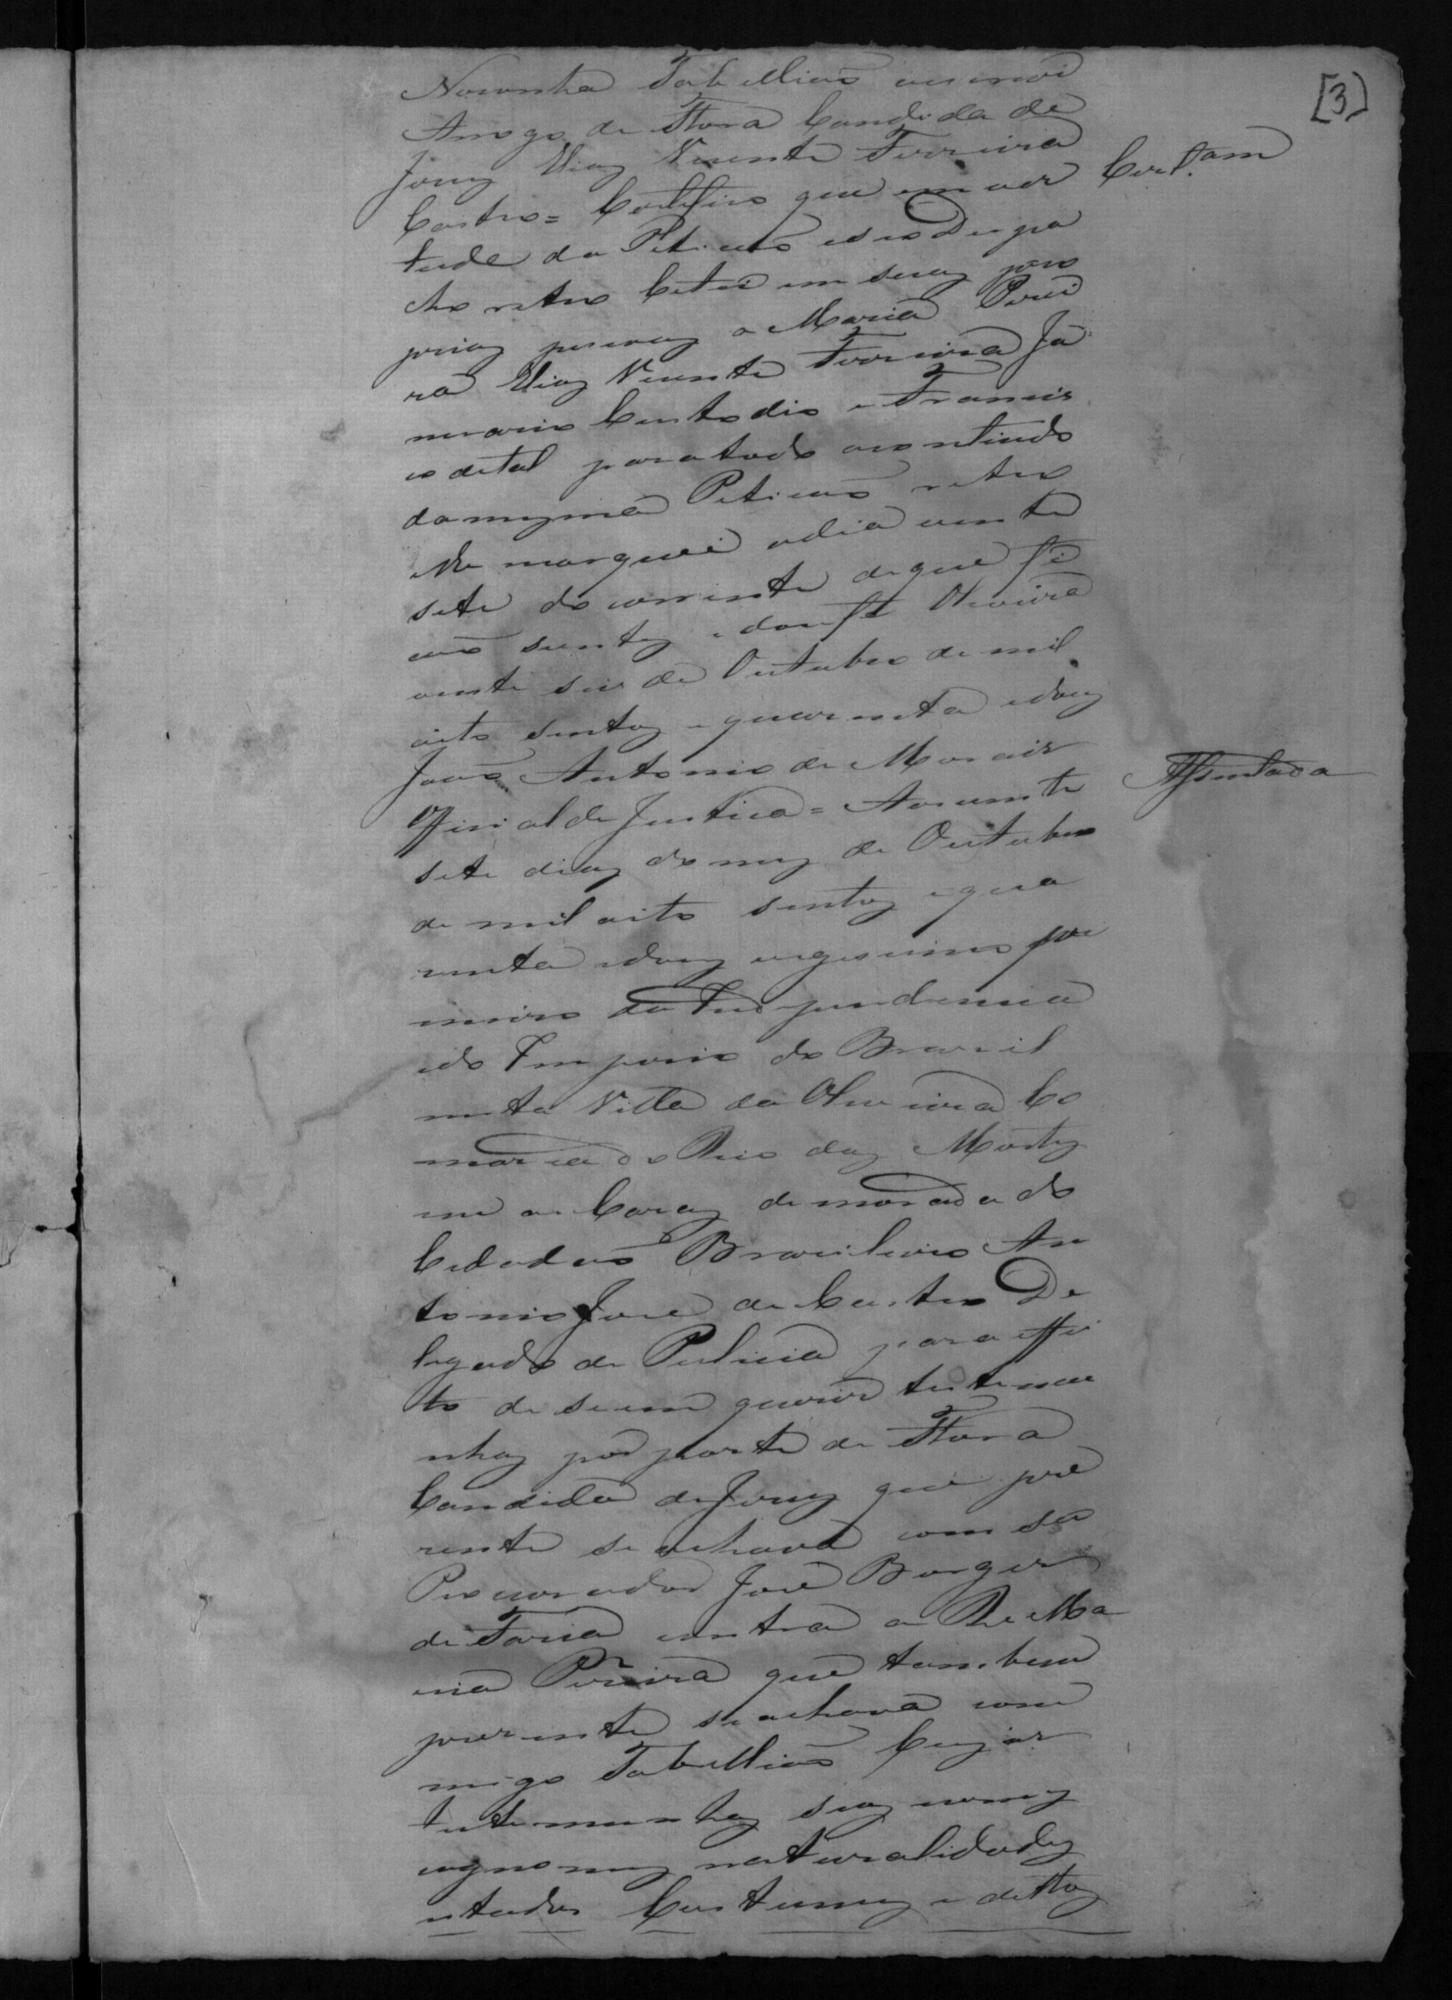 [3]
Noronha Tabelliaõ escrevi
Arrogo de Flora Candida de
Jesus Elias Vicente Ferreira
Castro = Certifico que em ver
Cert.am
tude da Peticaõ eseo Despa
cho retro Citei em suas pro
prias pesoas a Maria Perei
ra Elias Vicente Ferreira Ja
nuario Custodio e Francis
co detal para todo ocontiudo
da mesma Peticaõ retro
elhe marquei odia vinte
sete do corrente deque fi
caõ sientes e dou fé Oliveira
vinte seis de Outubro de mil
oito sentos e quarenta edous
Joaõ Antonio de Morais
Official de Justica = Aos vinte
Assentada
sete dias do mes de Outubro
de mil oito sentos e qua
renta edous vigesimo pri
meiro da Independencia
edo Imperio do Brasil
nesta Villa da Oliveira Co
marca do Rio das Mortes
em as Casas de morada do
Cidadaõ Brasileiro An
tonio José de Castro De
legado de Policia para effei
to de serem queridas testemu
nhas por parte de Flora
Candida de Jesus que pre
zente se achava com seo
Procurador José Borges
de Faria contra a Re Ma
ria Pereira que tambem
prezente se achava com
migo Tabelliaõ Cujas
testemunhas seos nomes
cognomes naturalidades
estados Custumes e dittos